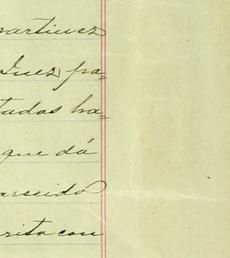 martinez
Juez pa=
tadas ha=
que dá
arecido
rita con